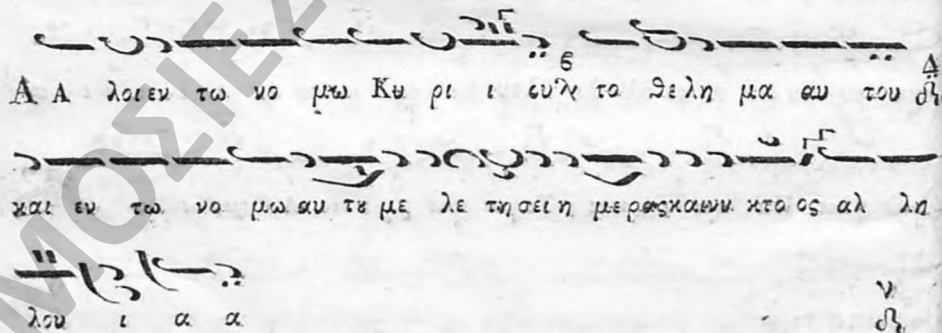 Α Α λοιεν τω νο μω Κυ ρι ι ευ το θε λη μα αυ του Δ
και εν τω νο μω αυ τȣ με λε τησει η μερας και νυ κτο ος αλ λη
λου ι α α ν
ΜΟΣΙΕΣ